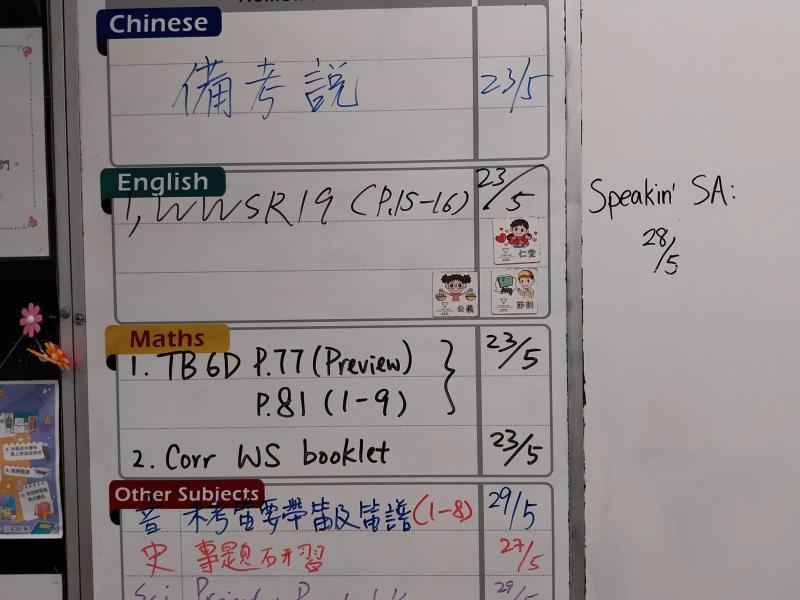 Chinese
備考說 23/5
English
1, WWSR19 (P.15-16) 23/5
仁愛
公義 節制
Speakin' SA:
28/5
Maths
1. TB 6D P.77 (Preview) 23/5
P.81 (1-9)
2. Corr WS booklet 23/5
Other Subjects
音 未考笛要帶笛及笛譜 (1-8) 29/5
史 專題研習 27/5
Sci Project 29/5